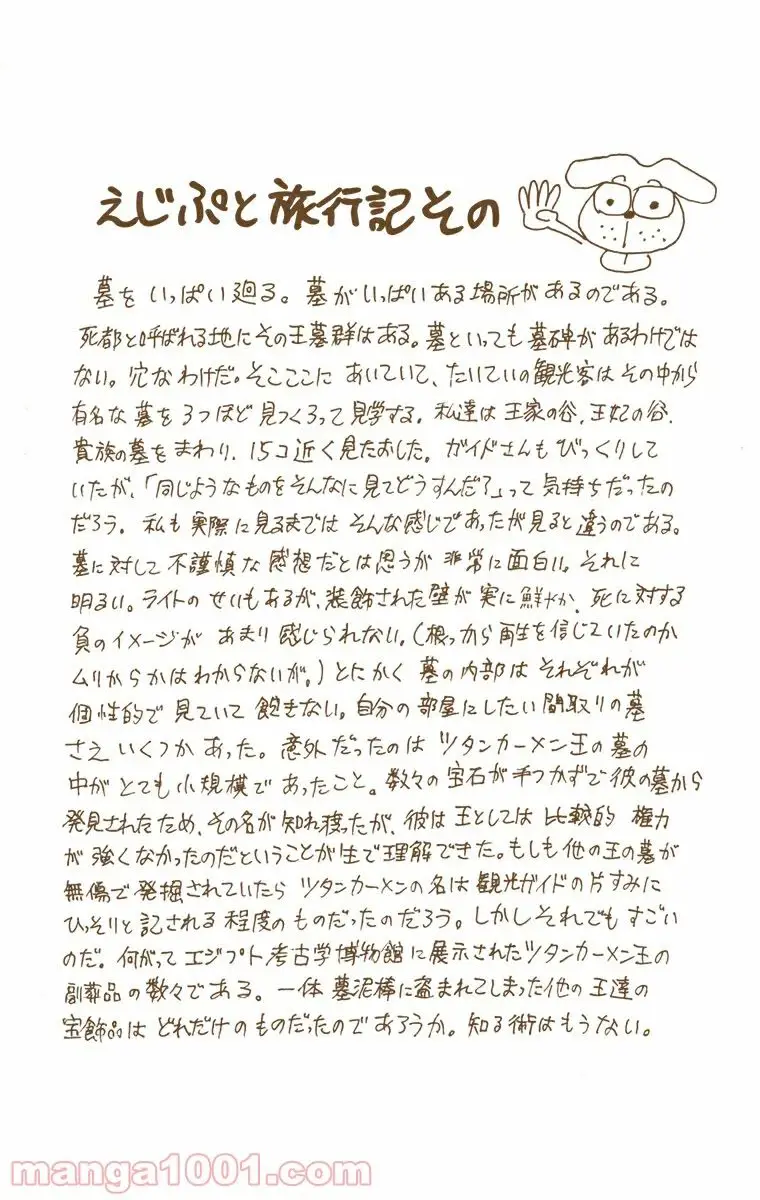 えじぷと旅行記その
墓をいっぱい廻る。墓がいっぱいある場所があるのである。
死都と呼ばれる地にその王墓群はある。墓といっても墓碑があるわけでは
ない。穴なわけだ。そこここにあいていて、たいていの観光客はその中から
有名な墓を3つほど見つくろって見学する。私達は王家の谷、王妃の谷、
貴族の墓をまわり、15コ近く見たおした。ガイドさんもびっくりして
いたが、「同じようなものをそんなに見てどうすんだ?」って気持ちだったの
だろう。私も実際に見るまではそんな感じであったが見ると違うのである。
墓に対して不謹慎な感想だとは思うが非常に面白い。それに
明るい。ライトのせいもあるが、装飾された壁が実に鮮やか。死に対する
負のイメージがあまり感じられない。(根っから再生を信じていたのか
ムリからかはわからないが。)とにかく墓の内部はそれぞれが
個性的で見ていて飽きない。自分の部屋にしたい間取りの墓
さえいくつかあった。意外だったのはツタンカーメン王の墓の
中がとても小規模であったこと。数々の宝石が手つかずで彼の墓から
発見されたため、その名が知れ渡ったが、彼は王としては比較的権力
が強くなかったのだということが生で理解できた。もしも他の王の墓が
無傷で発掘されていたらツタンカーメンの名は観光ガイドの片すみに
ひっそりと記される程度のものだったのだろう。しかしそれでもすごい
のだ。何がってエジプト考古学博物館に展示されたツタンカーメン王の
副葬品の数々である。一体墓泥棒に盗まれてしまった他の王達の
宝飾品はどれだけのものだったのであろうか。知る術はもうない。
manga1001.com